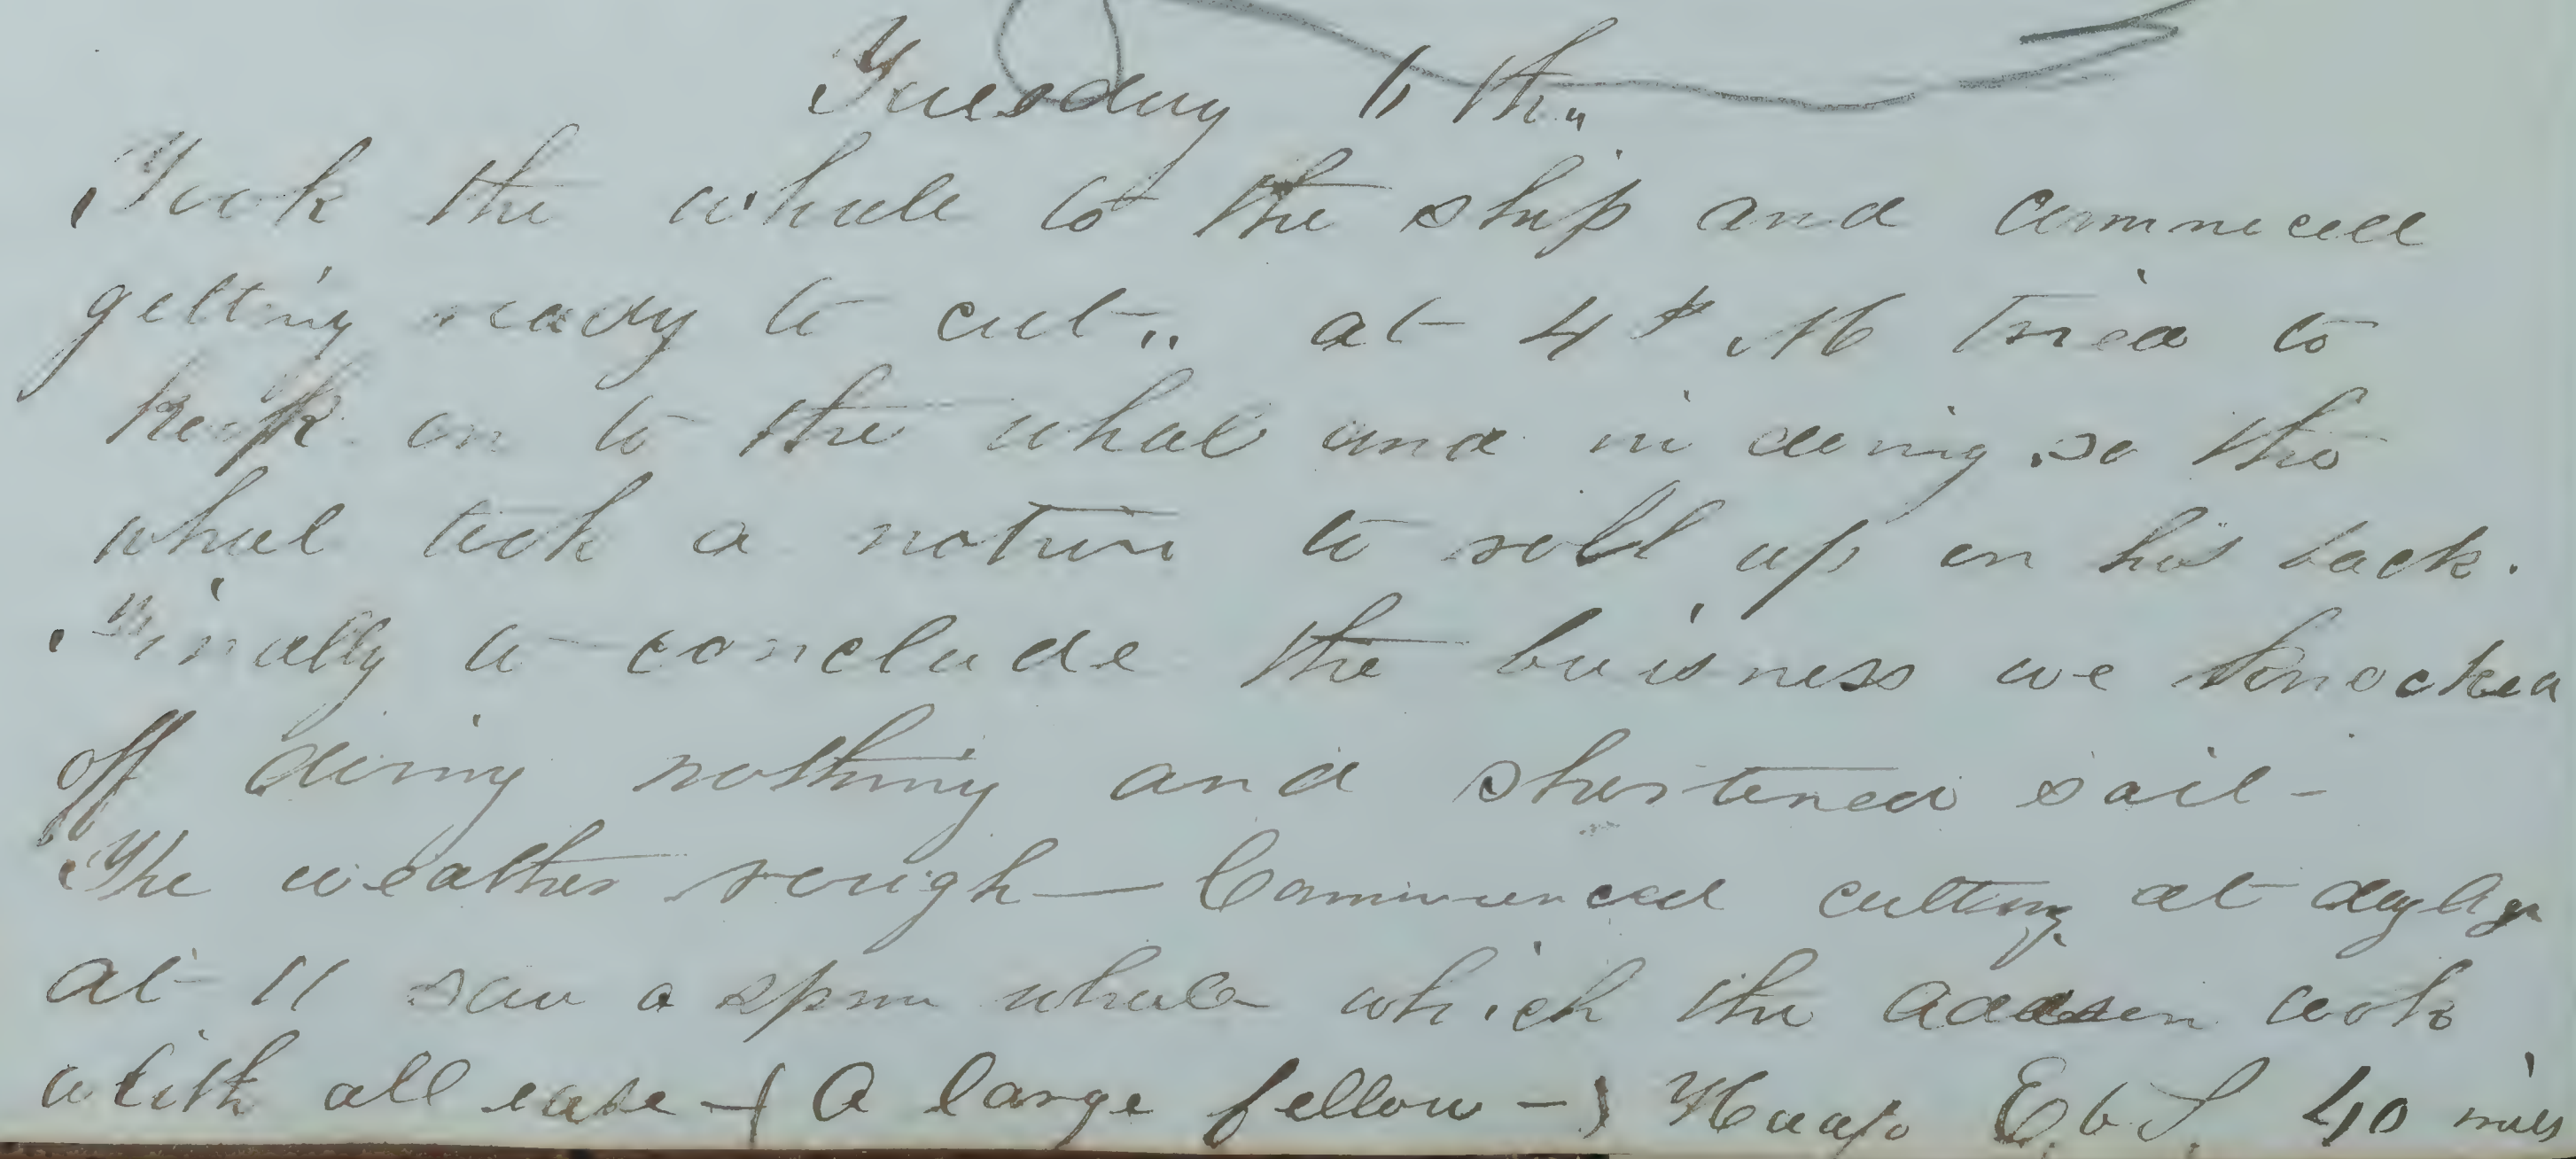 Tuesday 6 th "
Took the whale to the ship and commeced
getting ready to cut " at 4 P M tried to
hook on to the whal and in doing so the
whal took a notion to roll up on his back.
Finally to conclude the buisness we knocked
off doing nothing and shortened sail -
The weather rough - Commenced cutting at
at 11 saw a spm whale which the took
with all ease - ( A large fellow - ) E. b S. 40 miles